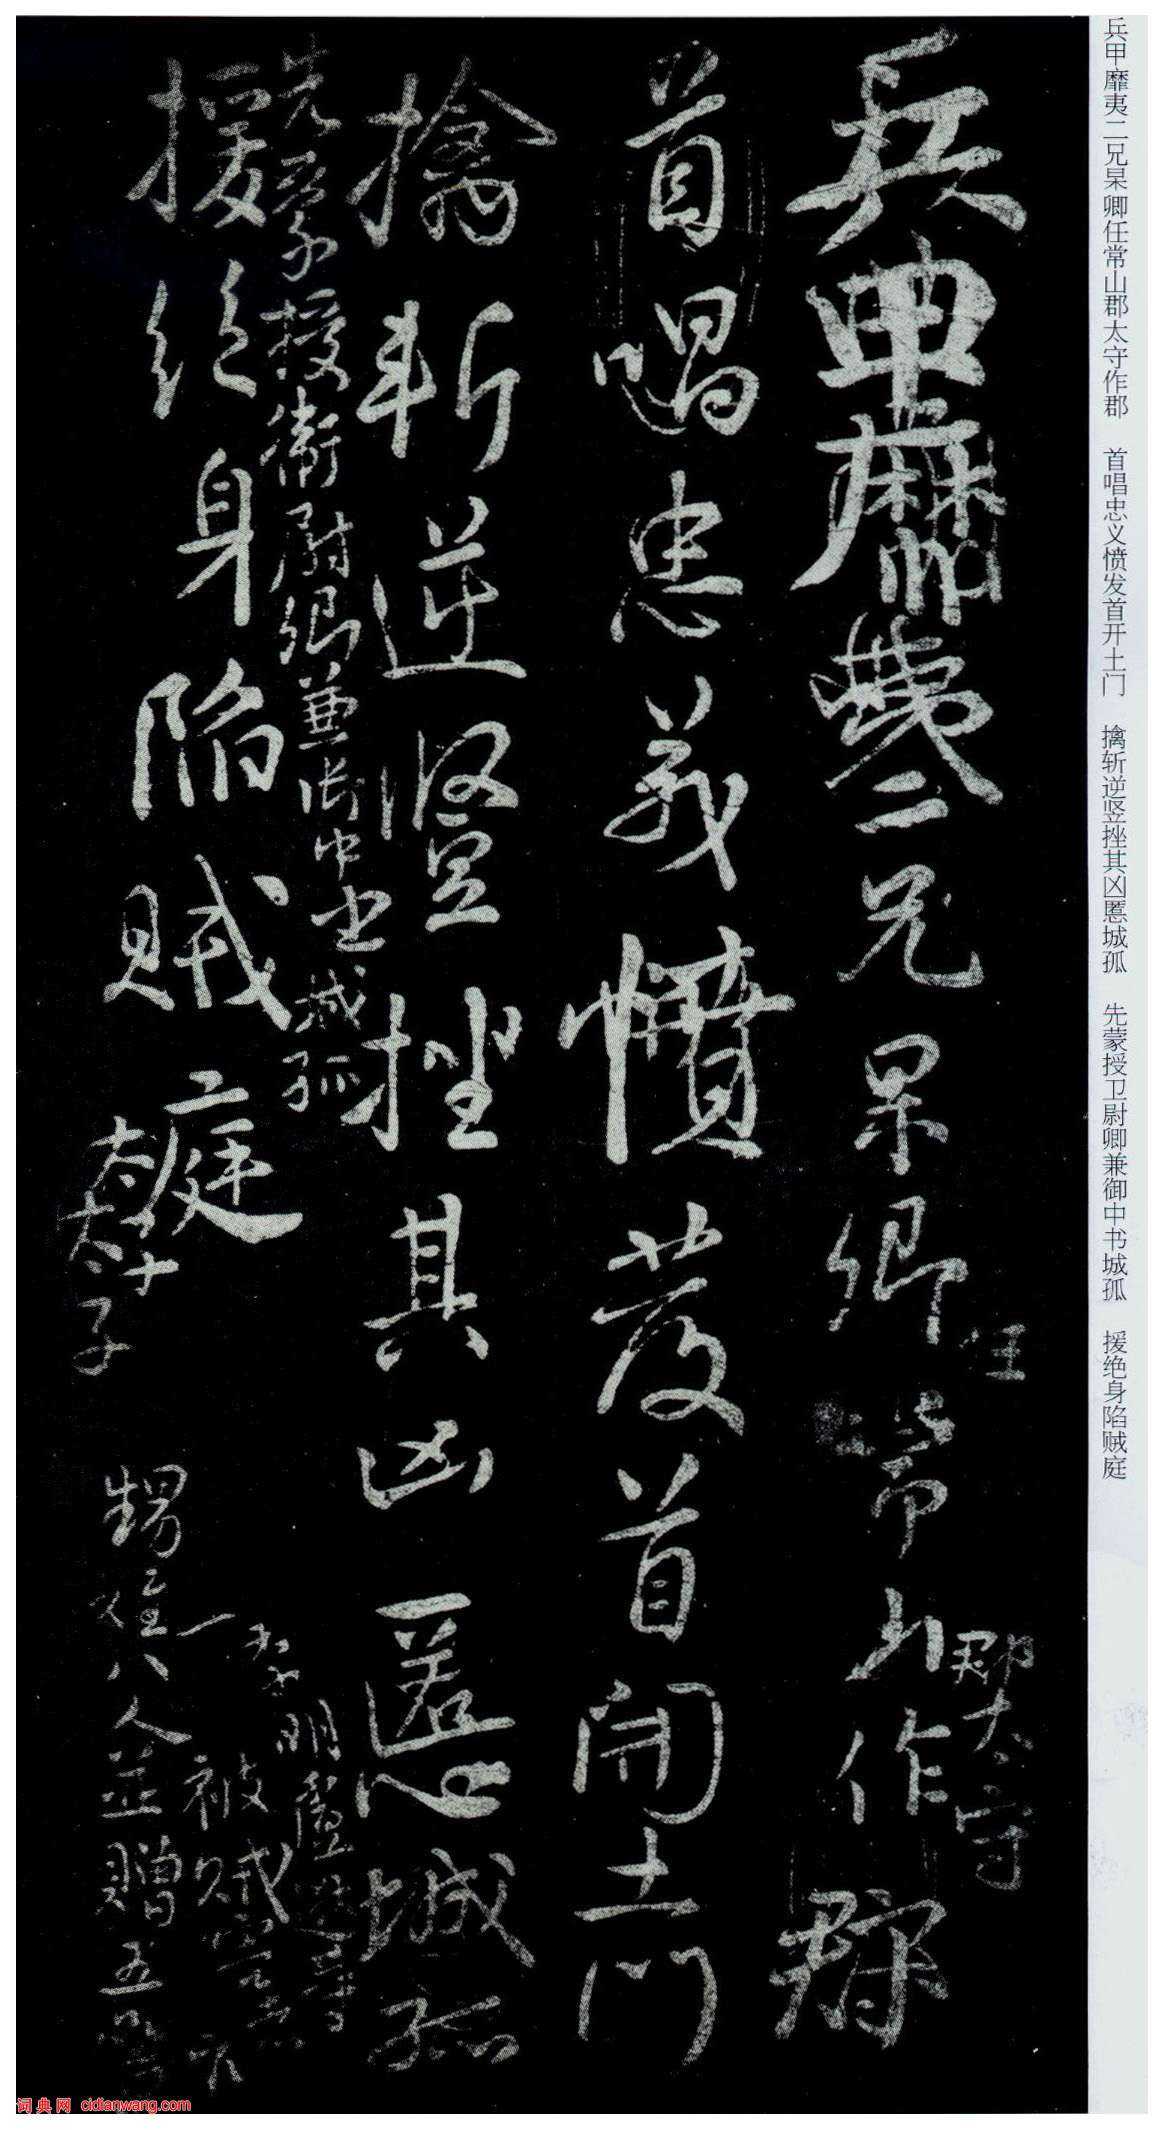 兵甲靡夷二兄杲卿任常山郡太守作郡 首唱忠义愤发首开土门 擒斩逆竖挫其凶慝城孤 先蒙授卫尉卿兼御中书城孤 援绝身陷贼庭
兵甲靡夷二兄杲卿常山作郡
任
郡太守
首唱忠義憤發首開土門
擒斬逆竪挫其凶慝城孤
先蒙授衛尉卿兼御中書城孤
援絕身陷賊庭
太子
明盧逖等
被賊害
甥姪八人並贈五品
词典网 cidianwang.com